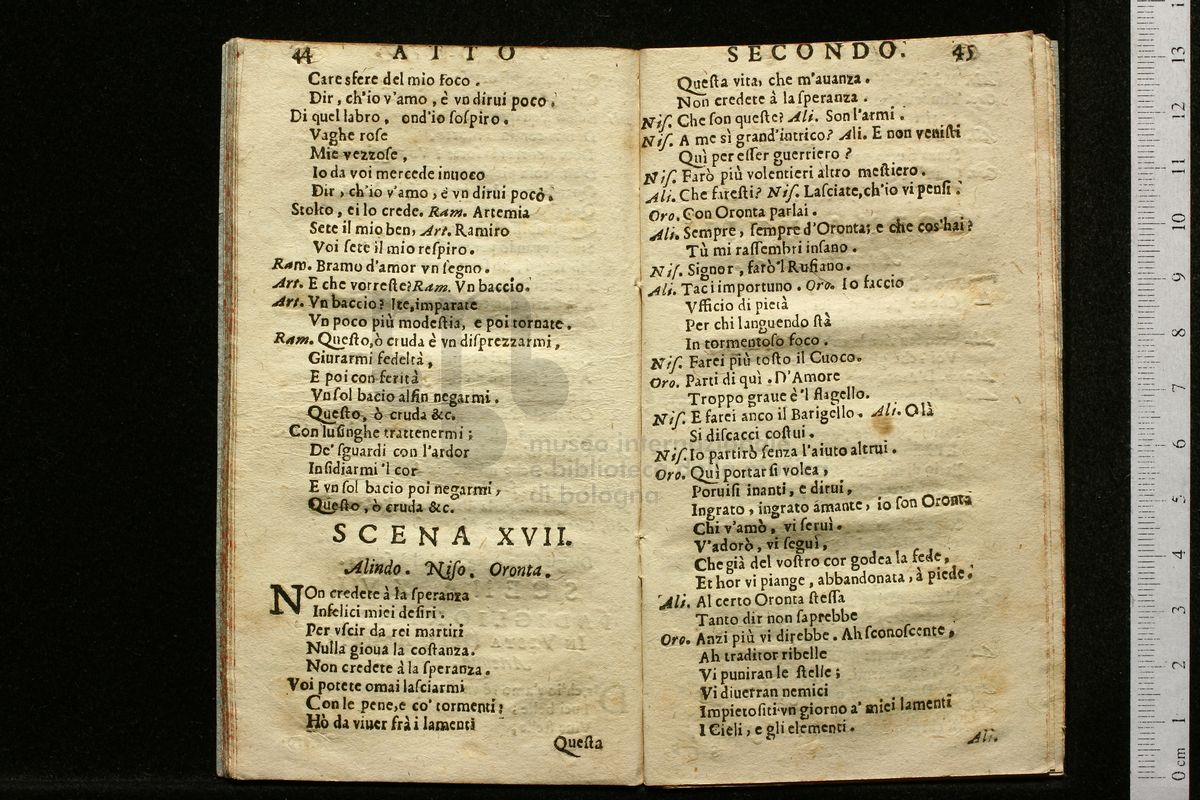 44 ATTO
Care sfere del mio foco.
Dir, ch'io v'amo, è vn dirui poco.
Di quel labro, ond'io sospiro.
Vaghe rose
Mie vezzose,
Io da voi mercede inuoco
Dir, ch'io v'amo, è vn dirui poco.
Stolto, ei lo crede. Ram. Artemia
Sete il mio ben, Art. Ramiro
Voi sete il mio respiro.
Ram. Bramo d'amor vn segno.
Art. E che vorreste? Ram. Vn baccio.
Art. Vn baccio? Ite, imparate
Vn poco più modestia, e poi tornate.
Ram. Questo, ò cruda è vn disprezzarmi,
Giurarmi fedeltà,
E poi con ferità
Vn sol bacio alfin negarmi.
Questo, ò cruda &c.
Con lusinghe trattenermi;
De' sguardi con l'ardor
Insidiarmi 'l cor
E vn sol bacio poi negarmi,
Questo, ò cruda &c.
SCENA XVII.
Alindo. Niso. Oronta.
NOn credete à la speranza
Infelici miei desiri.
Per vscir da rei martiri
Nulla gioua la costanza.
Non credete à la speranza.
Voi potete omai lasciarmi
Con le pene, e co' tormenti;
Hò da viuer frà i lamenti
Questa
SECONDO. 45
Questa vita, che m'auanza.
Non credete à la speranza.
Nis. Che son queste? Ali. Son l'armi.
Nis. A me sì grand'intrico? Ali. E non venisti
Quì per esser guerriero?
Nis. Farò più volentieri altro mestiero.
Ali. Che faresti? Nis. Lasciate, ch'io vi pensi.
Oro. Con Oronta parlai.
Ali. Sempre, sempre d'Oronta; e che cos'hai?
Tù mi rassembri insano.
Nis. Signor, farò 'l Rufiano.
Ali. Taci importuno. Oro. Io faccio
Vfficio di pietà
Per chi languendo stà
In tormentoso foco.
Nis. Farei più tosto il Cuoco.
Oro. Parti di quì. D'Amore
Troppo graue è 'l flagello.
Nis. E farei anco il Barigello. Ali. Olà
Si discacci costui.
Nis. Io partirò senza l'aiuto altrui.
Oro. Quì portarsi volea,
Poruisi inanti, e dirui,
Ingrato, ingrato amante, io son Oronta
Chi v'amò, vi seruì.
V'adorò, vi seguì,
Che già del vostro cor godea la fede,
Et hor vi piange, abbandonata, à piede.
Ali. Al certo Oronta stessa
Tanto dir non saprebbe
Oro. Anzi più vi direbbe. Ah sconoscente,
Ah traditor ribelle
Vi puniran le stelle;
Vi diuerran nemici
Impietositi vn giorno a' miei lamenti
I Cieli, e gli elementi.
Ali.
museo internazionale
e biblioteca
di bologna
0 cm 1 2 3 4 5 6 7 8 9 10 11 12 13